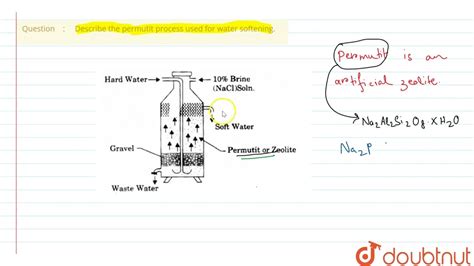 Question : Describe the permutit process used for water softening.
Hard Water
10% Brine
(NaCl)Soln.
Soft Water
Gravel
Permutit or Zeolite
Waste Water
Permutit is an
artificial zeolite.
Na2Al2Si2O8·XH2O
Na2P
doubtnut